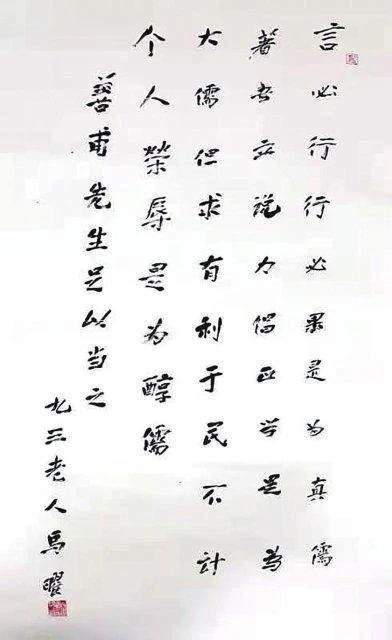 言必行行必果是为真儒
著书立说力倡正学是为
大儒但求有利于民不计
个人荣辱是为醇儒
善甫先生足以当之
九三老人马曜